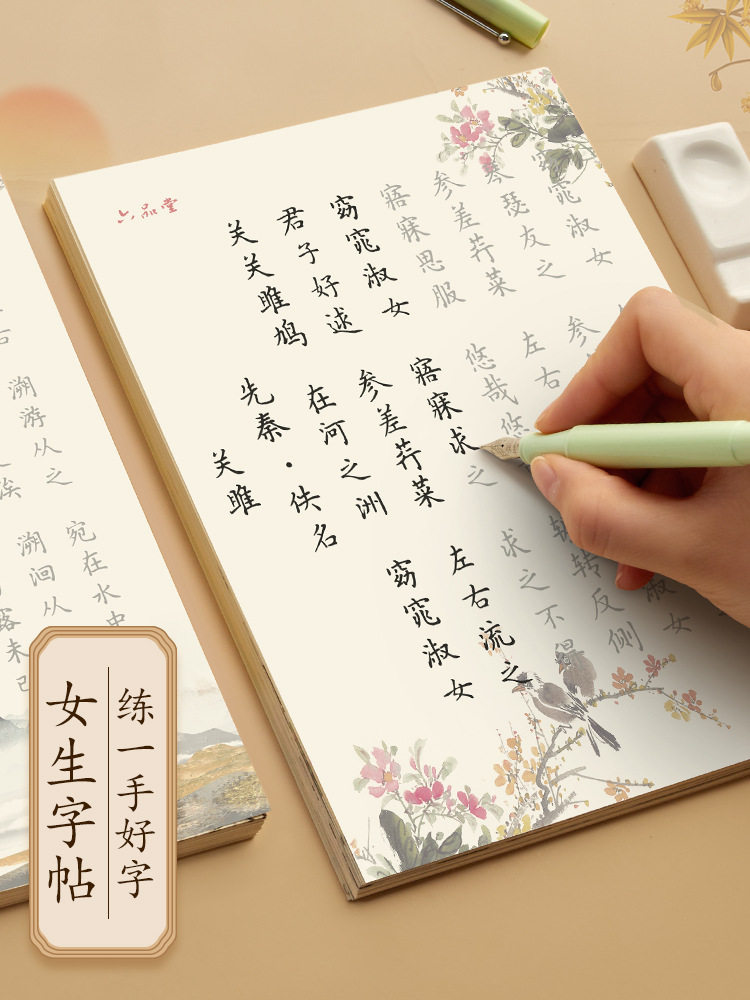 六品堂
关雎
先秦·佚名
关关雎鸠 在河之洲 窈窕淑女
君子好逑 参差荇菜 左右流之
窈窕淑女 寤寐求之 求之不得
寤寐思服 悠哉悠 转转反侧
参差荇菜 左右 淑女
琴瑟友之 参
窈窕淑女
溯游从之 宛在水中
溯洄从
未已
练一手好字
女生字帖